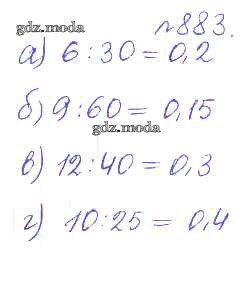 gdz.moda №883.
а) 6 : 30 = 0,2
б) 9 : 60 = 0,15
gdz.moda
в) 12 : 40 = 0,3
г) 10 : 25 = 0,4